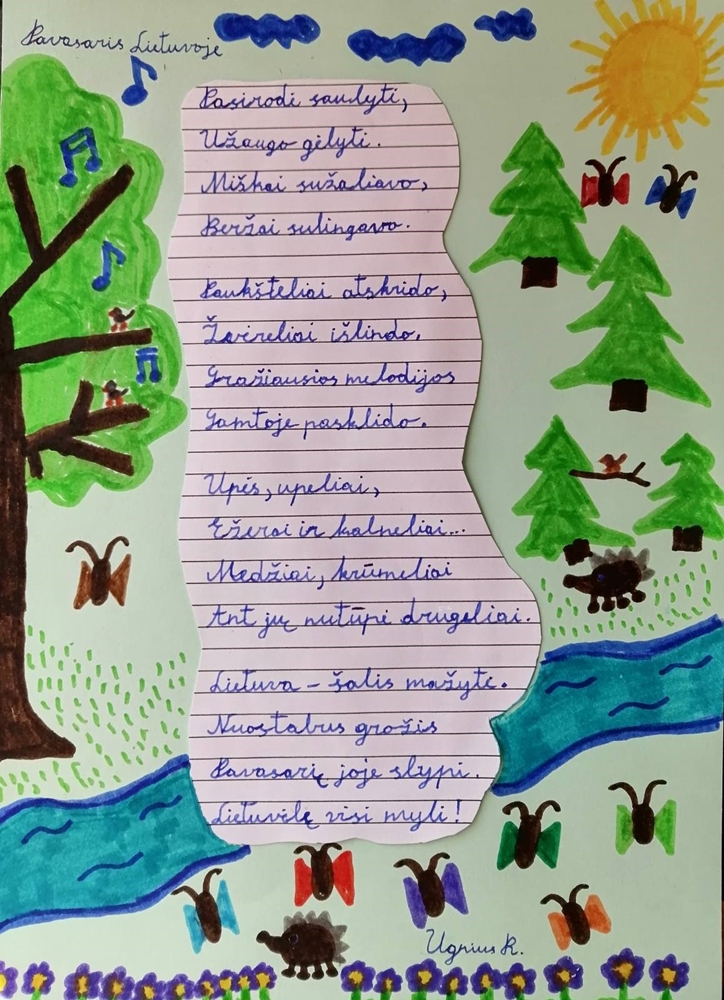 Pavasaris Lietuvoje
Pasirodi saulyti,
Užaugo gėlyti.
Miškai sužaliavo,
Beržai sulingavo.
Paukšteliai atskrido,
Žvėreliai išlindo,
Gražiausios melodijos
Gamtoje pasklido.
Upės, upeliai,
Ežerai ir kalneliai...
Medžiai, krūmeliai
Ant jų nutūpė drugeliai.
Lietuva – šalis mažytė.
Nuostabus grožis
Pavasarį joje slypi.
Lietuvėlę visi myli!
Ugnius R.